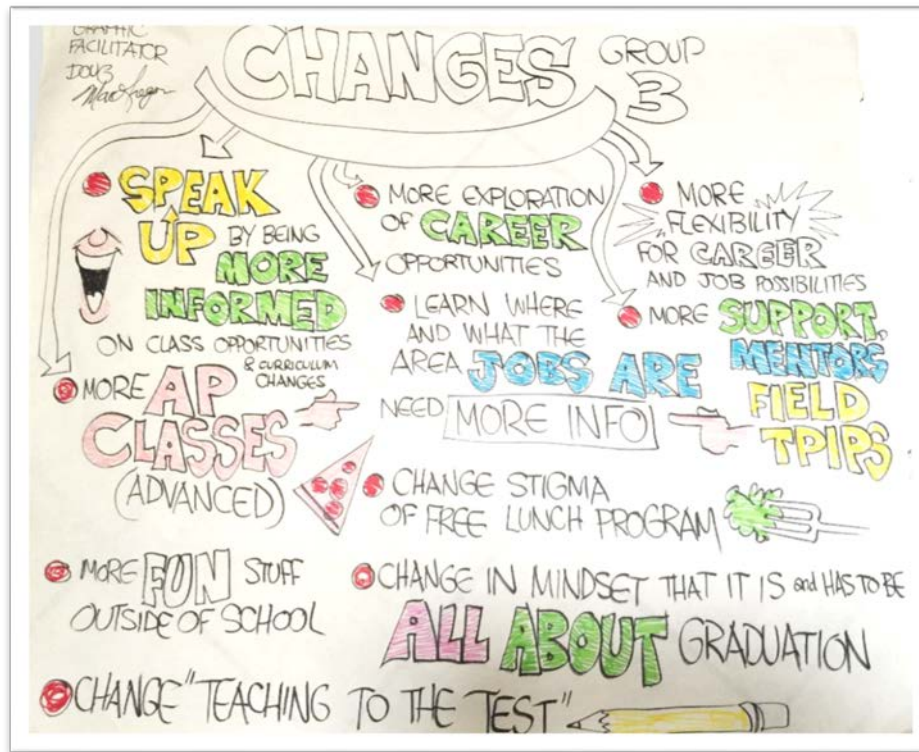 GRAPHIC
FACILITATOR
DOUG
MacGregor
CHANGES
GROUP
3
SPEAK
UP BY BEING
MORE
INFORMED
ON CLASS OPPORTUNITIES
& CURRICULUM
CHANGES
MORE AP
CLASSES
(ADVANCED)
MORE FUN STUFF
OUTSIDE OF SCHOOL
MORE EXPLORATION
OF CAREER
OPPORTUNITIES
LEARN WHERE
AND WHAT THE
AREA JOBS ARE
NEED MORE INFO
MORE
FLEXIBILITY
FOR CAREER
AND JOB POSSIBILITIES
MORE SUPPORT,
MENTORS
FIELD
TPIPS
CHANGE STIGMA
OF FREE LUNCH PROGRAM
CHANGE IN MINDSET THAT IT IS and HAS TO BE
ALL ABOUT GRADUATION
CHANGE "TEACHING TO THE TEST"